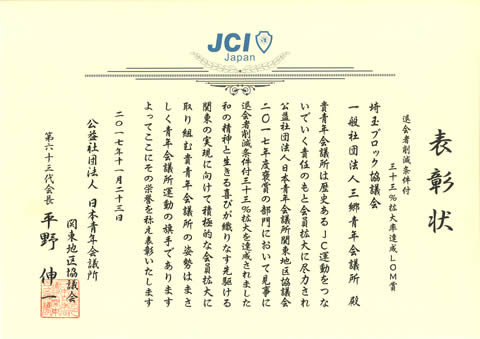 JCI
Japan
表彰状
退会者削減条件付
三十三%拡大率達成LOM賞
埼玉ブロック協議会
一般社団法人三郷青年会議所 殿
貴青年会議所は歴史あるJC運動をつな
いでいく責任のもと会員拡大に尽力され
公益社団法人日本青年会議所関東地区協議会
二〇一七年度褒賞の部門において見事に
退会者削減条件付三十三%拡大を達成されました
和の精神と生きる喜びが織りなす先駆ける
関東の実現に向けて積極的な会員拡大に
取り組む貴青年会議所の姿勢はまさ
しく青年会議所運動の旗手であります
よってここにその栄誉を称え表彰いたします
二〇一七年十一月二十三日
公益社団法人 日本青年会議所
関東地区協議会
第六十三代会長 平野 伸一